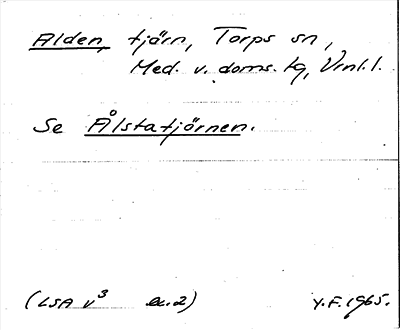 Alden, tjärn, Torps sn,
Med. v. doms. tg, Vrnl. l.
Se Ålstatjörnen.
(LSA V³ bl. 2) Y.F. 1965.